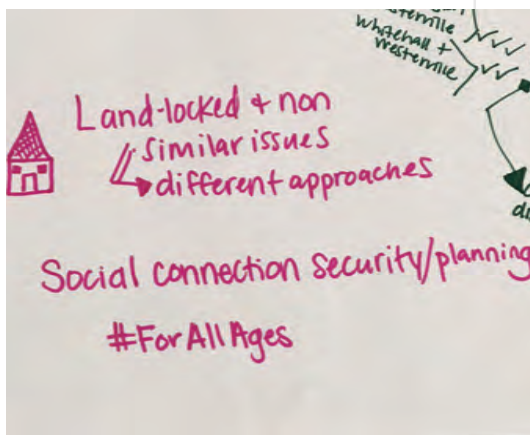 Westerville
Whitehall +
Westerville
Land-locked + non
similar issues
different approaches
Social connection security/planning
#ForAllAges